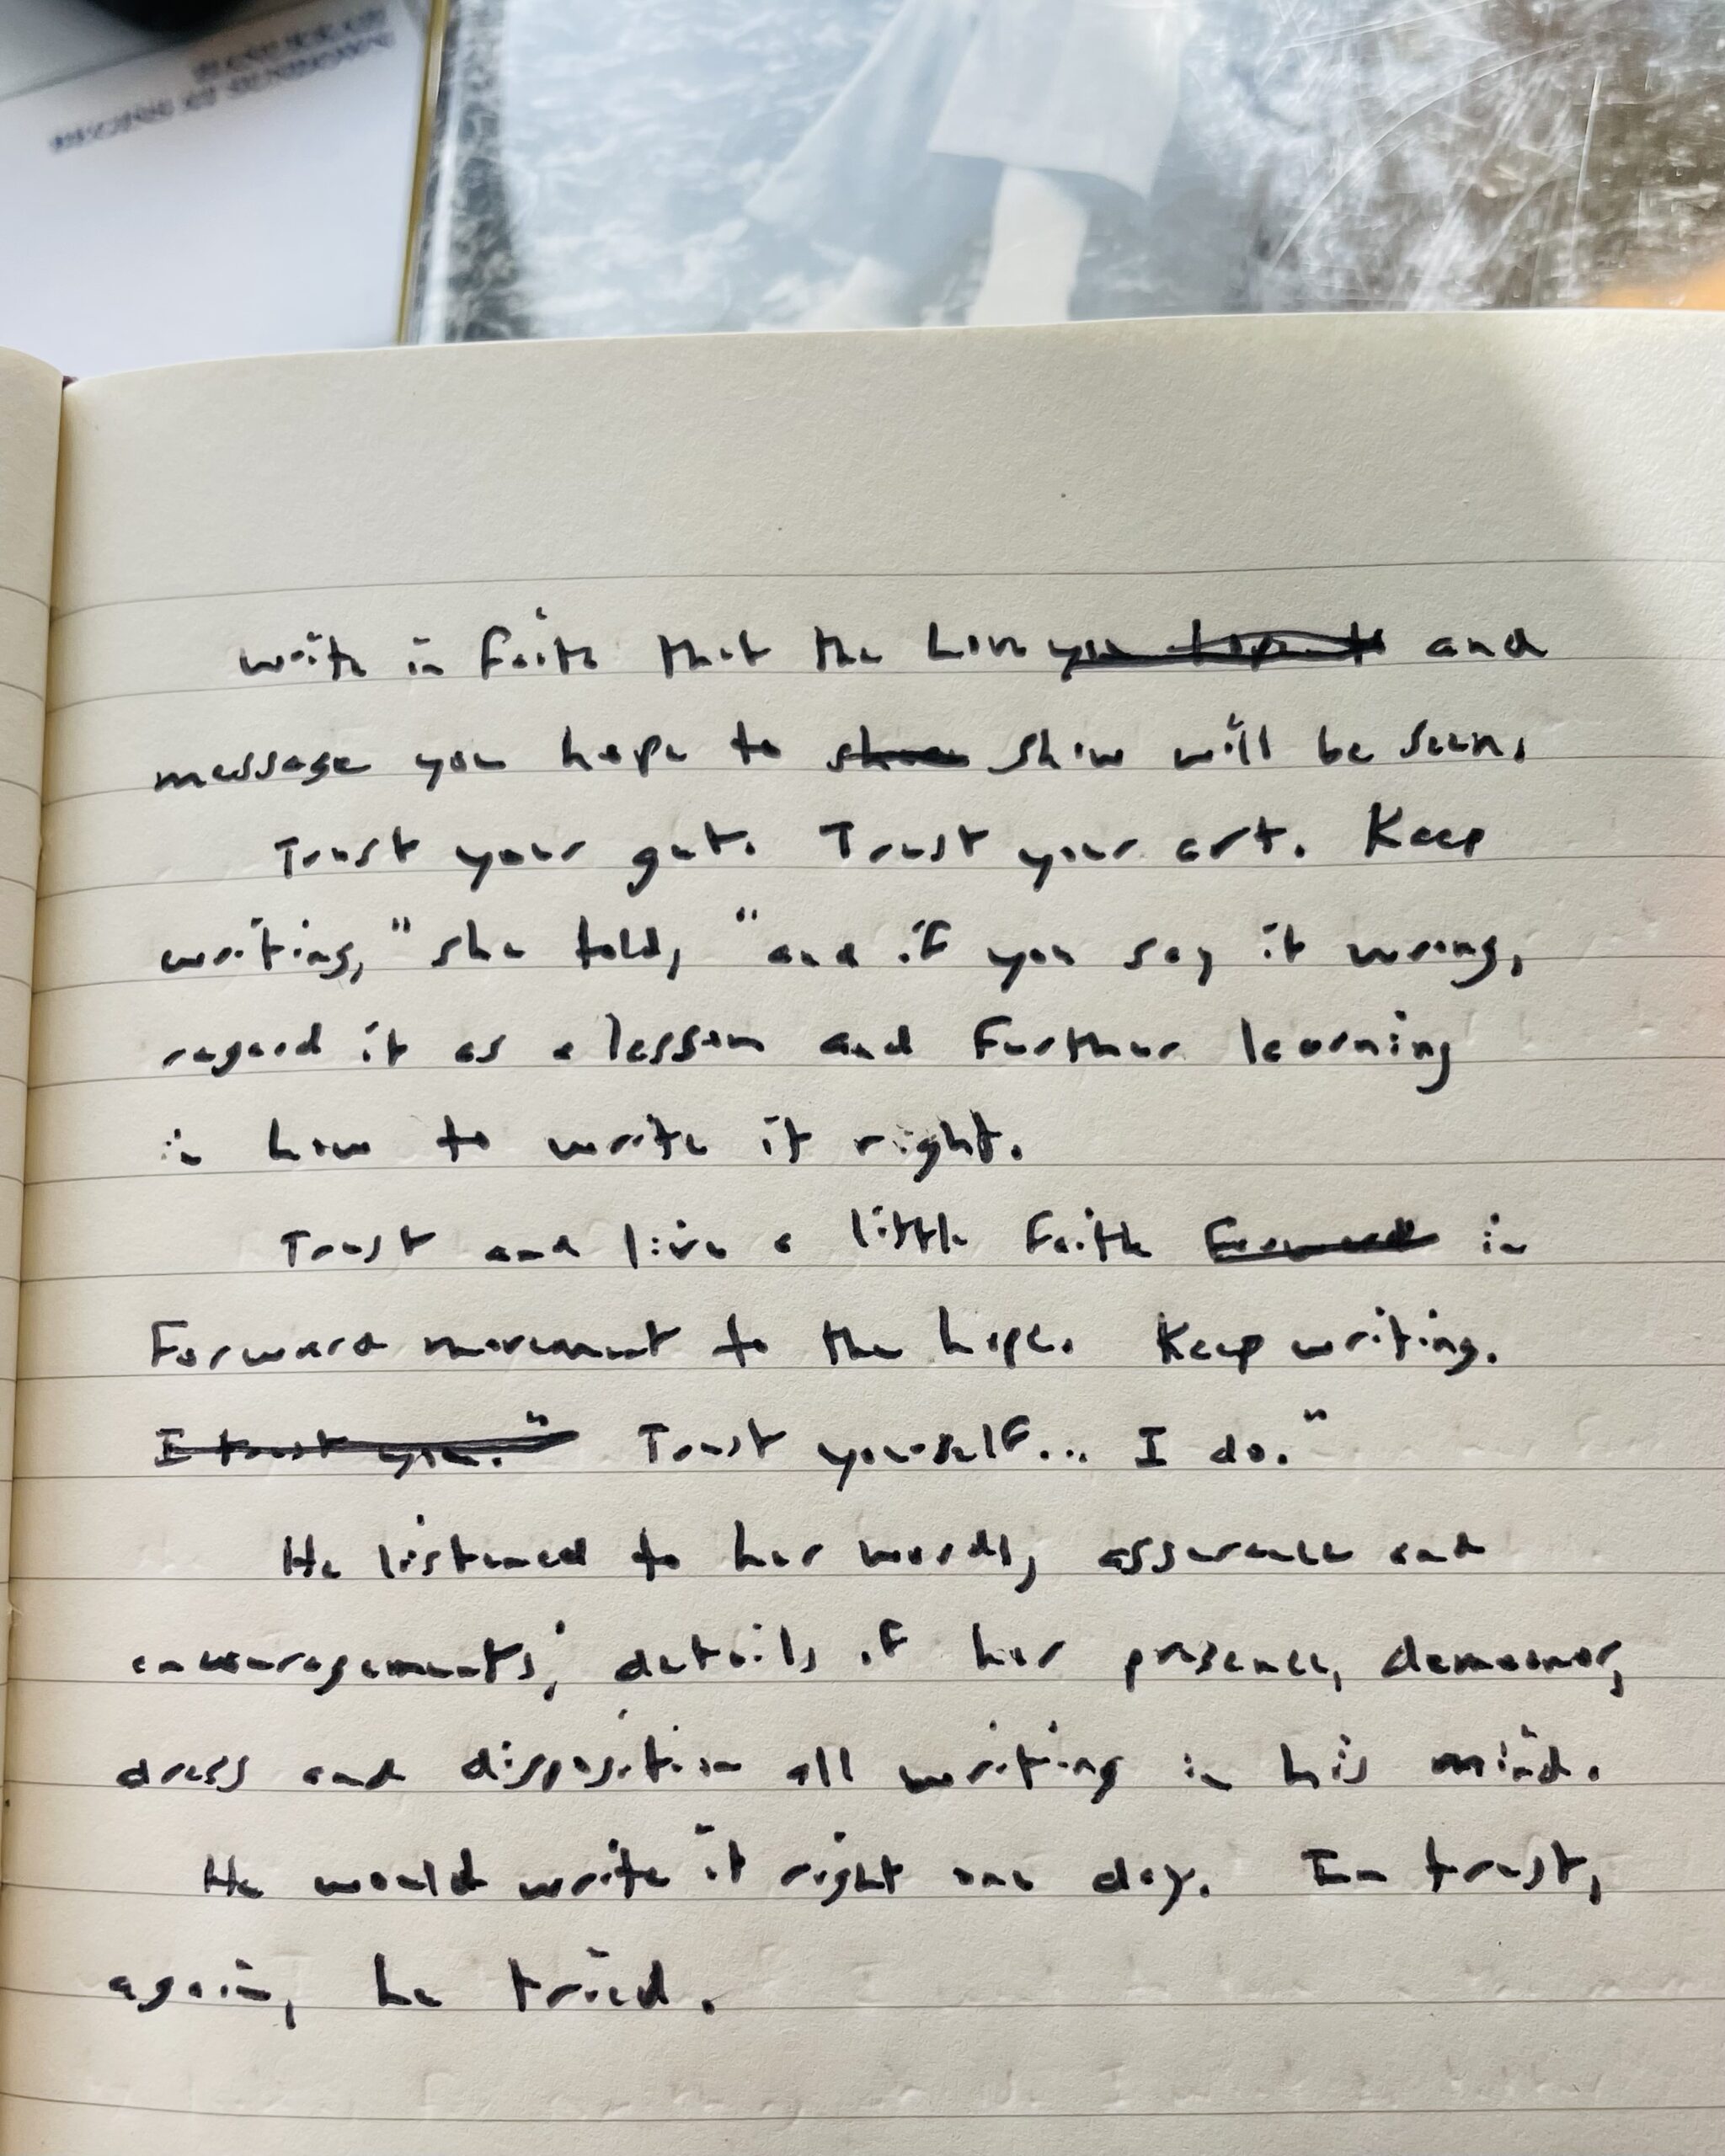 write in faith that the love you hope to and
message you hope to show show will be seen.
Trust your gut. Trust your art. Keep
writing," she told, "and if you say it wrong,
regard it as a lesson and further learning
in how to write it right.
Trust and live a little faith forward in
forward movement to the hope. Keep writing.
I trust you." Trust yourself... I do."
He listened to her words, assurance and
encouragements; details of her presence, demeanor,
dress and disposition all writing in his mind.
He would write it right one day. In trust,
again, he tried.